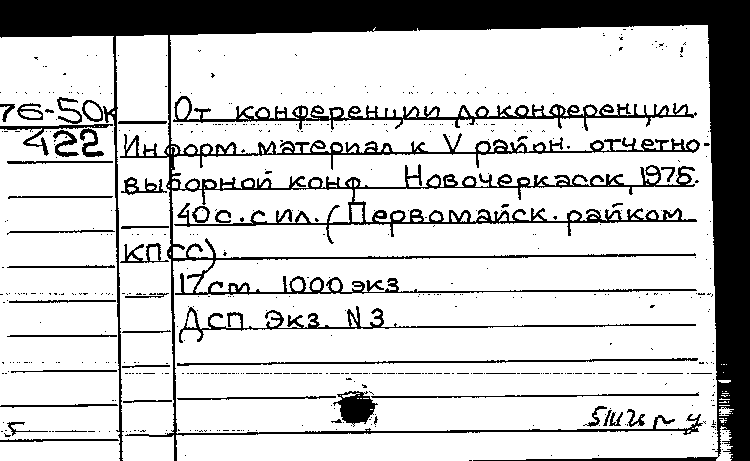 76-50к От конференции до конференции.
422 Информ. материал к V район. отчетно-
выборной конф. Новочеркасск, 1975.
40 с. с ил. (Первомайск. райком
КПСС).
17 см. 1000 экз.
Дсп. Экз. N 3.
5